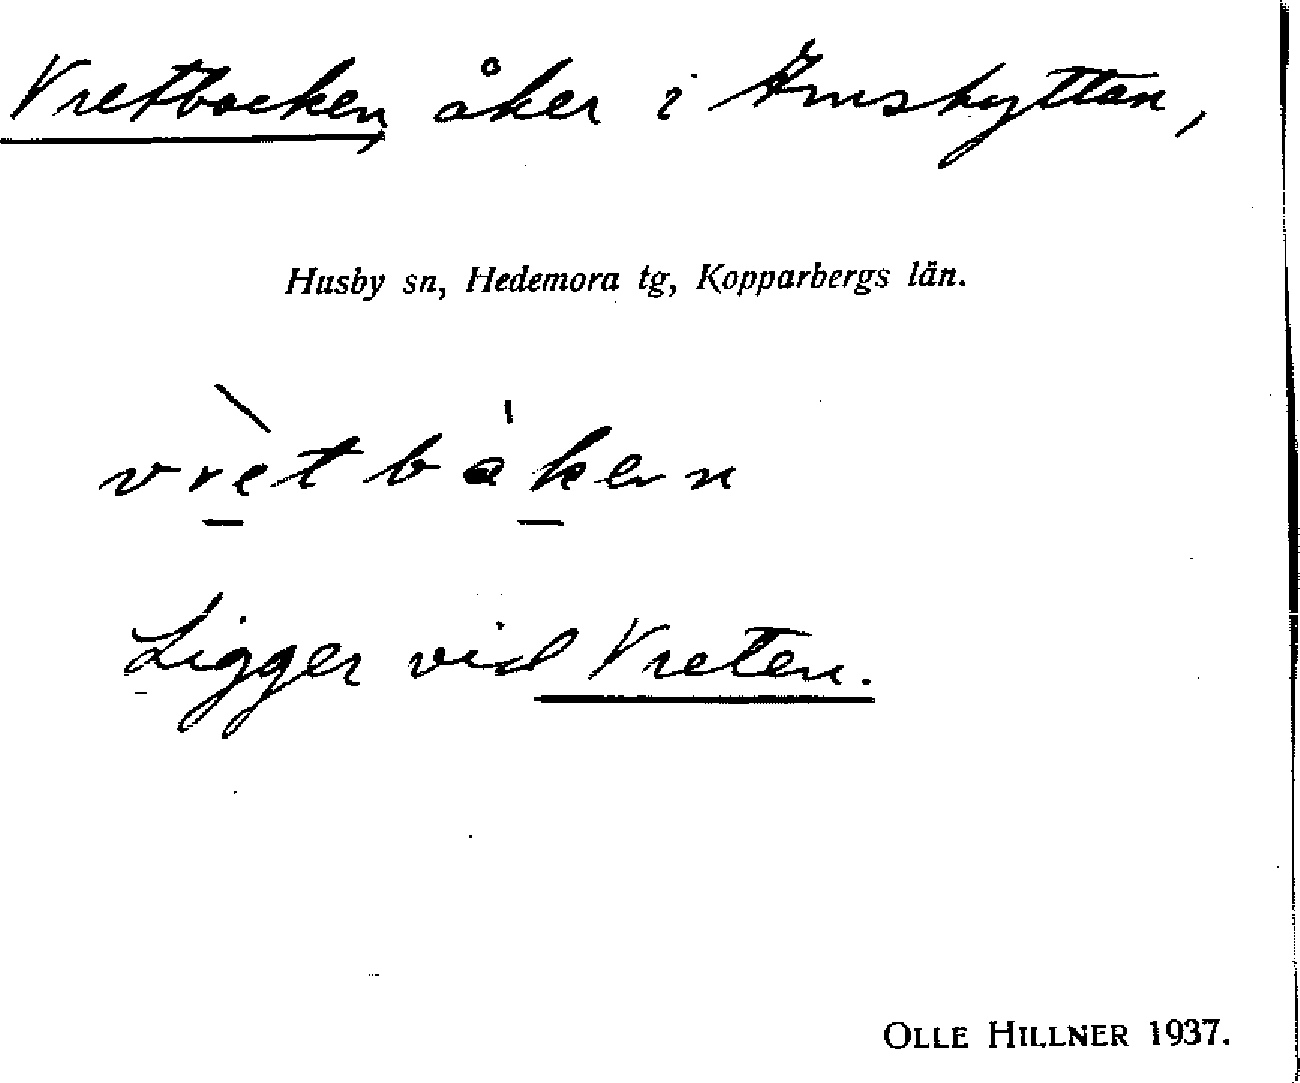 Vretbacken, åker i
Husby sn, Hedemora tg, Kopparbergs län.
vrètbáken
Ligger vid Vreten.
OLLE HILLNER 1937.